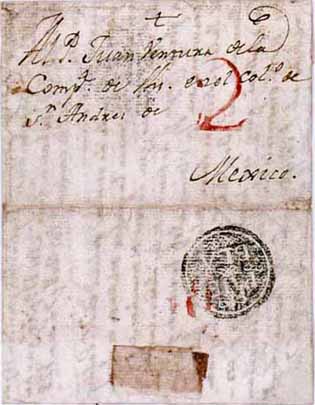 Al P. Juan Ventura de la
Comp.ª de Jhs. en el col.º de
S.n Andres de
2
Mexico.